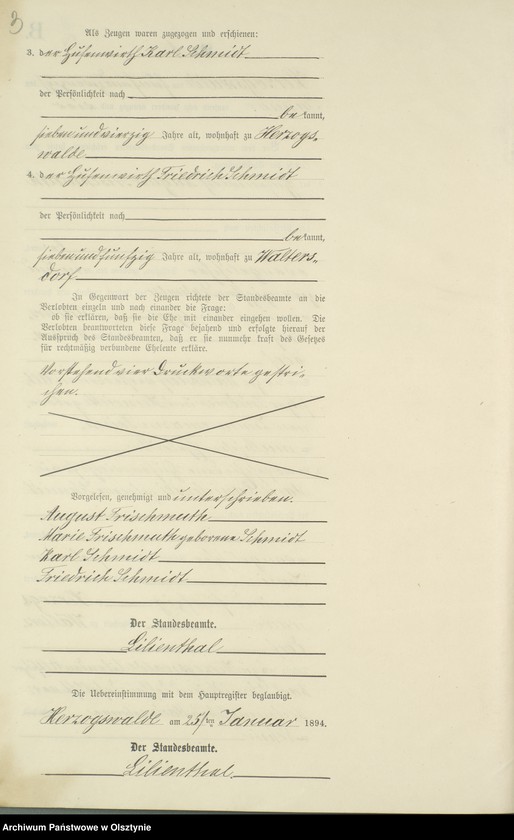 3
Als Zeugen waren zugezogen und erschienen:
3. der Hufenwirth Karl Schmidt
der Persönlichkeit nach
bekannt,
siebenundvierzig Jahre alt, wohnhaft zu Herzogs-
walde
4. der Hufenwirth Friedrich Schmidt
der Persönlichkeit nach
bekannt,
siebenundfünfzig Jahre alt, wohnhaft zu Walters-
dorf
In Gegenwart der Zeugen richtete der Standesbeamte an die
Verlobten einzeln und nach einander die Frage:
ob sie erklären, daß sie die Ehe mit einander eingehen wollen. Die
Verlobten beantworteten diese Frage bejahend und erfolgte hierauf der
Ausspruch des Standesbeamten, daß er sie nunmehr kraft des Gesetzes
für rechtmäßig verbundene Eheleute erkläre.
Vorstehend vier Druckworte gestri-
chen.
Vorgelesen, genehmigt und unterschrieben.
August Frischmuth
Marie Frischmuth geborene Schmidt
Karl Schmidt
Friedrich Schmidt
Der Standesbeamte.
Lilienthal
Die Uebereinstimmung mit dem Hauptregister beglaubigt.
Herzogswalde am 25/ten Januar 1894.
Der Standesbeamte.
Lilienthal.
Archiwum Państwowe w Olsztynie